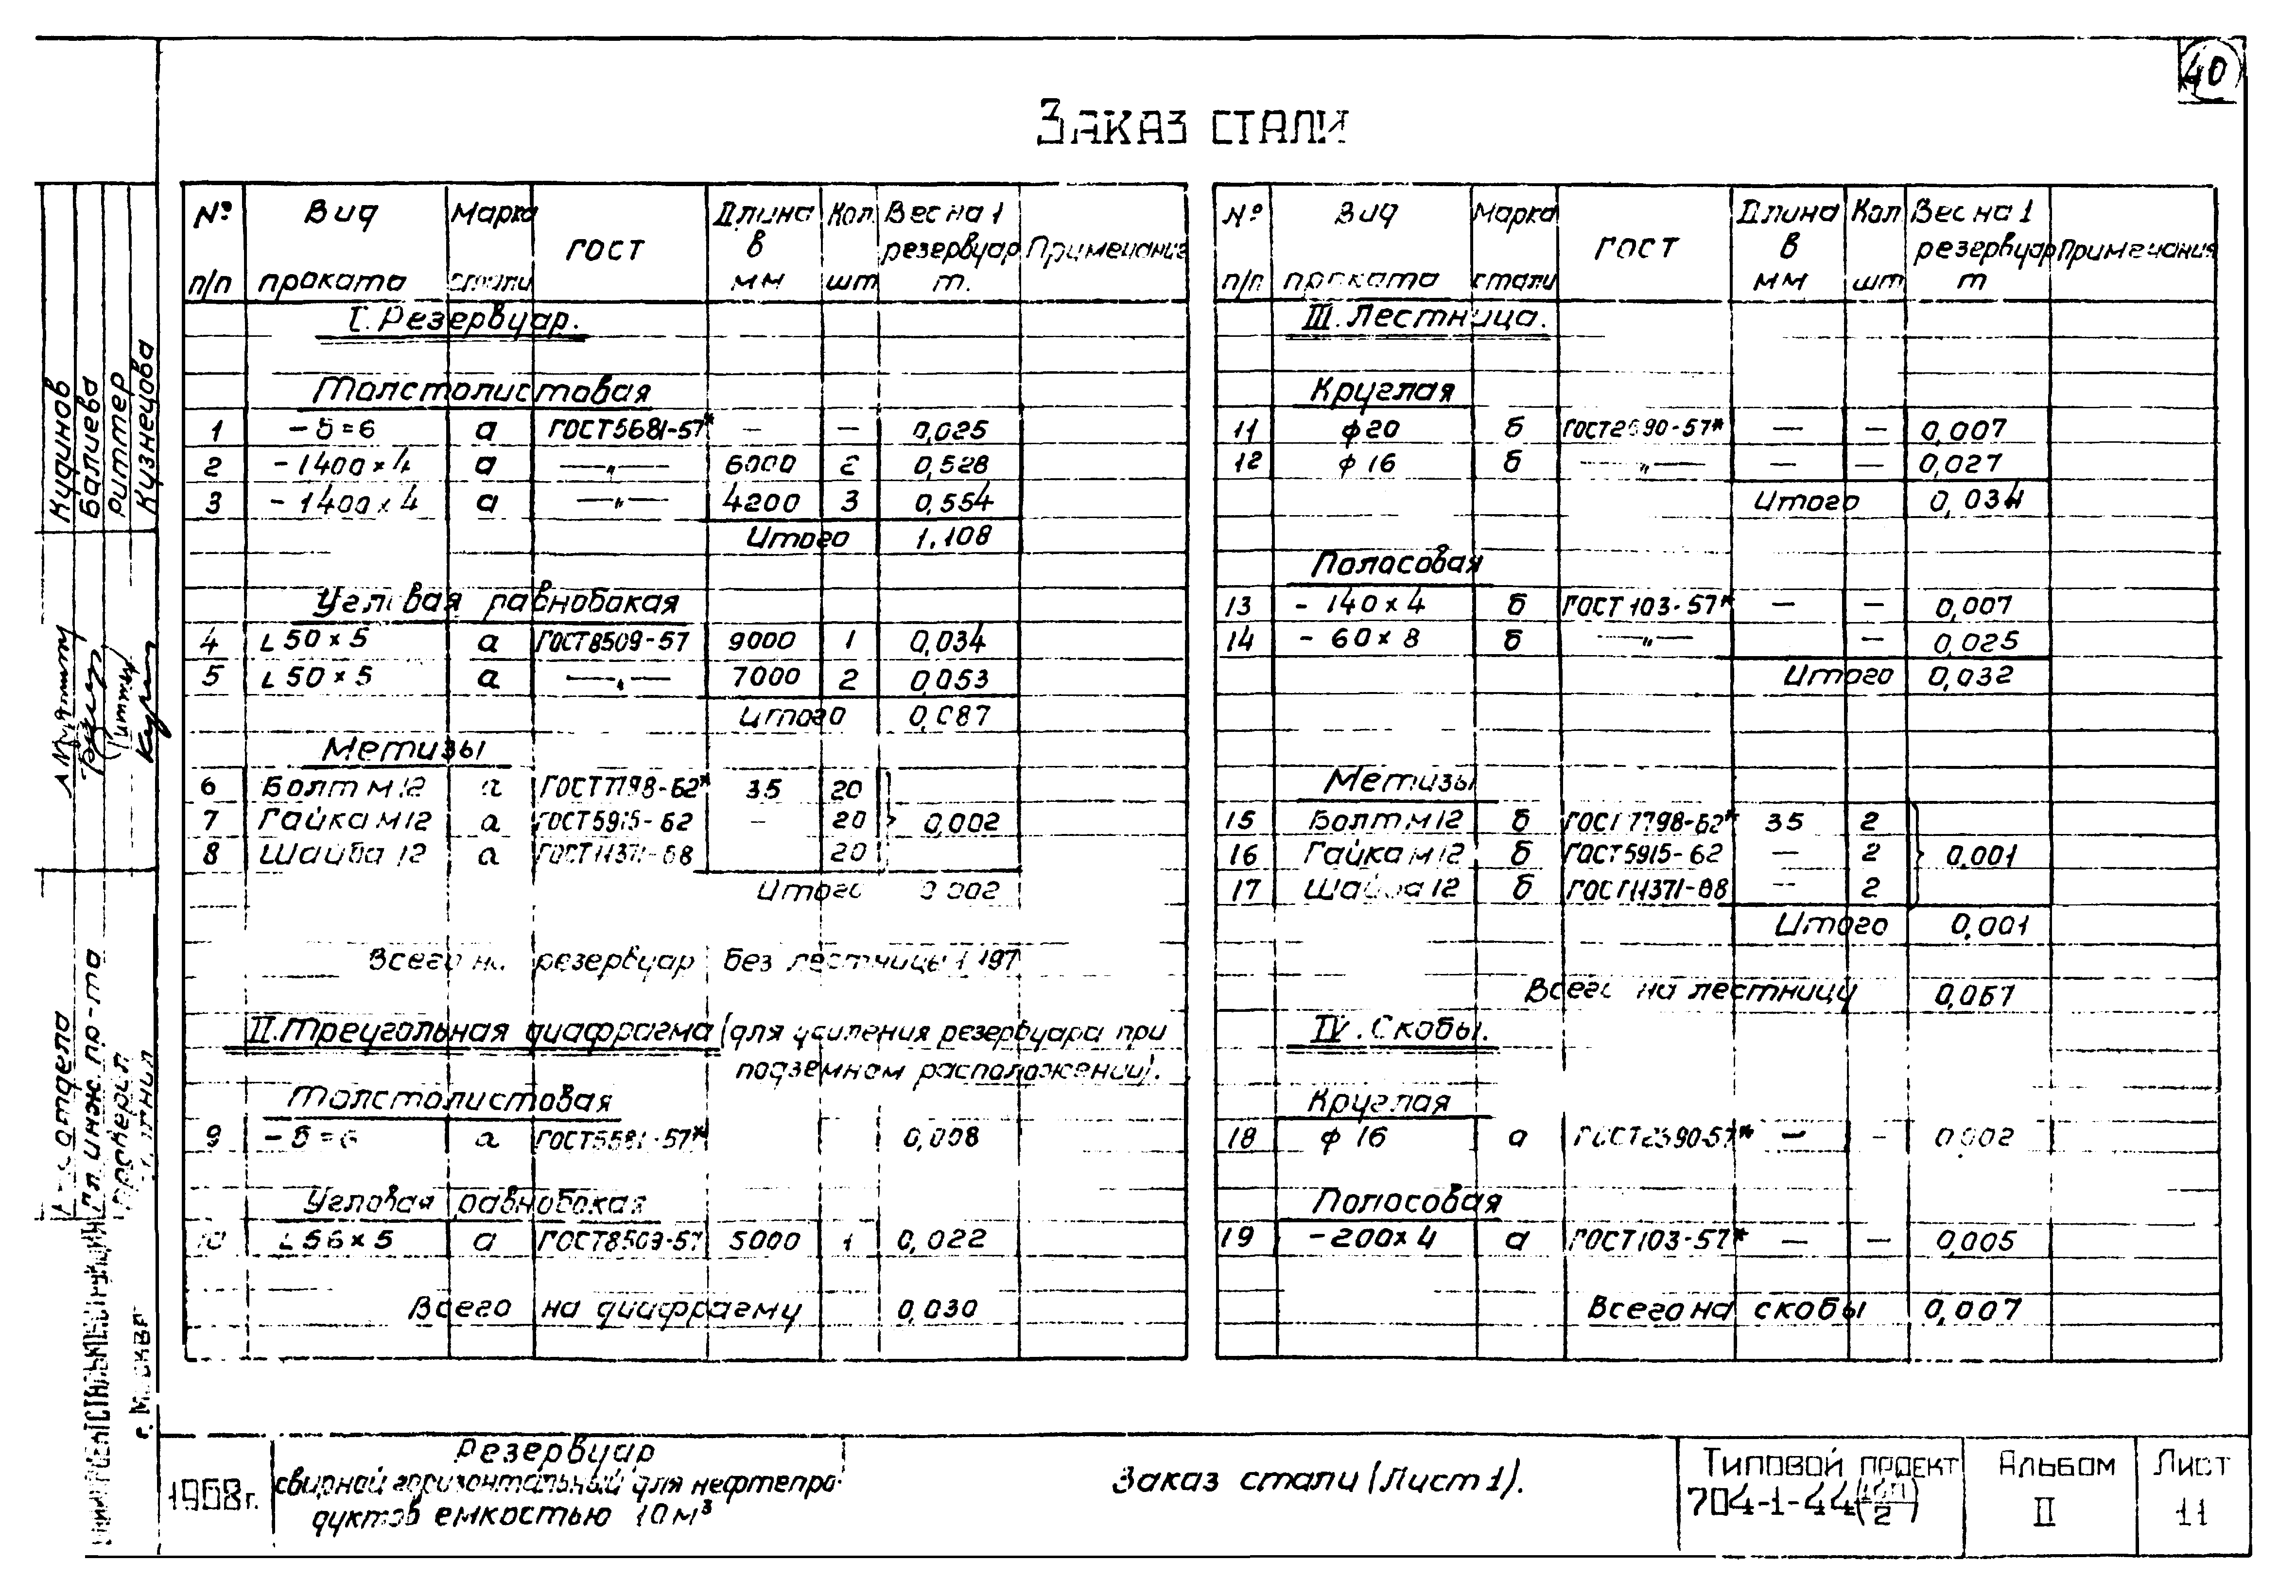 40
Заказ стали
№ п/п | Вид проката | Марка стали | ГОСТ | Длина в мм | Кол. шт | Вес на 1 резервуар т. | Примечание
I. Резервуар.
Толстолистовая
1 | - δ=6 | а | ГОСТ 5681-57* | — | — | 0,025
2 | - 1400×4 | а | —"— | 6000 | 2 | 0,528
3 | - 1400×4 | а | —"— | 4200 | 3 | 0,554
Итого 1.108
Угловая равнобокая
4 | L 50×5 | а | ГОСТ 8509-57 | 9000 | 1 | 0,034
5 | L 50×5 | а | —"— | 7000 | 2 | 0,053
Итого 0,087
Метизы
6 | Болт М12 | а | ГОСТ 7798-62* | 35 | 20
7 | Гайка М12 | а | ГОСТ 5915-62 | — | 20 | 0,002
8 | Шайба 12 | а | ГОСТ 11371-68 | 20
Итого 0.002
Всего на резервуар без лестницы 1.197
II. Треугольная диафрагма (для усиления резервуара при
подземном расположении).
Толстолистовая
9 | - δ=6 | а | ГОСТ 5681-57* | 0,008
Угловая равнобокая
10 | L 56×5 | а | ГОСТ 8509-57 | 5000 | 1 | 0,022
Всего на диафрагму 0,030
№ п/п | Вид проката | Марка стали | ГОСТ | Длина в мм | Кол шт | Вес на 1 резервуар т | Примечания
III. Лестница.
Круглая
11 | ϕ20 | б | ГОСТ 2590-57* | — | — | 0,007
12 | ϕ16 | б | —"— | — | — | 0,027
Итого 0,034
Полосовая
13 | - 140×4 | б | ГОСТ 103-57* | — | — | 0,007
14 | - 60×8 | б | —"— | — | 0,025
Итого 0,032
Метизы
15 | Болт М12 | б | ГОСТ 7798-62* | 35 | 2
16 | Гайка М12 | б | ГОСТ 5915-62 | — | 2 | 0,001
17 | Шайба 12 | б | ГОСТ 11371-68 | — | 2
Итого 0,001
Всего на лестницу 0,067
IV. Скобы.
Круглая
18 | ϕ16 | а | ГОСТ 2590-57* | — | — | 0,002
Полосовая
19 | - 200×4 | а | ГОСТ 103-57* | — | — | 0,005
Всего на скобы 0,007
Кудинов
Балиева
Риттер
Кузнецова
отдела
Гл. инж. пр-та
Проверил
г. Москва
1968г.
Резервуар
сварной горизонтальный для нефтепро-
дуктов емкостью 10м³
Заказ стали (Лист 1).
Типовой проект
704-1-44
Альбом
II
Лист
11